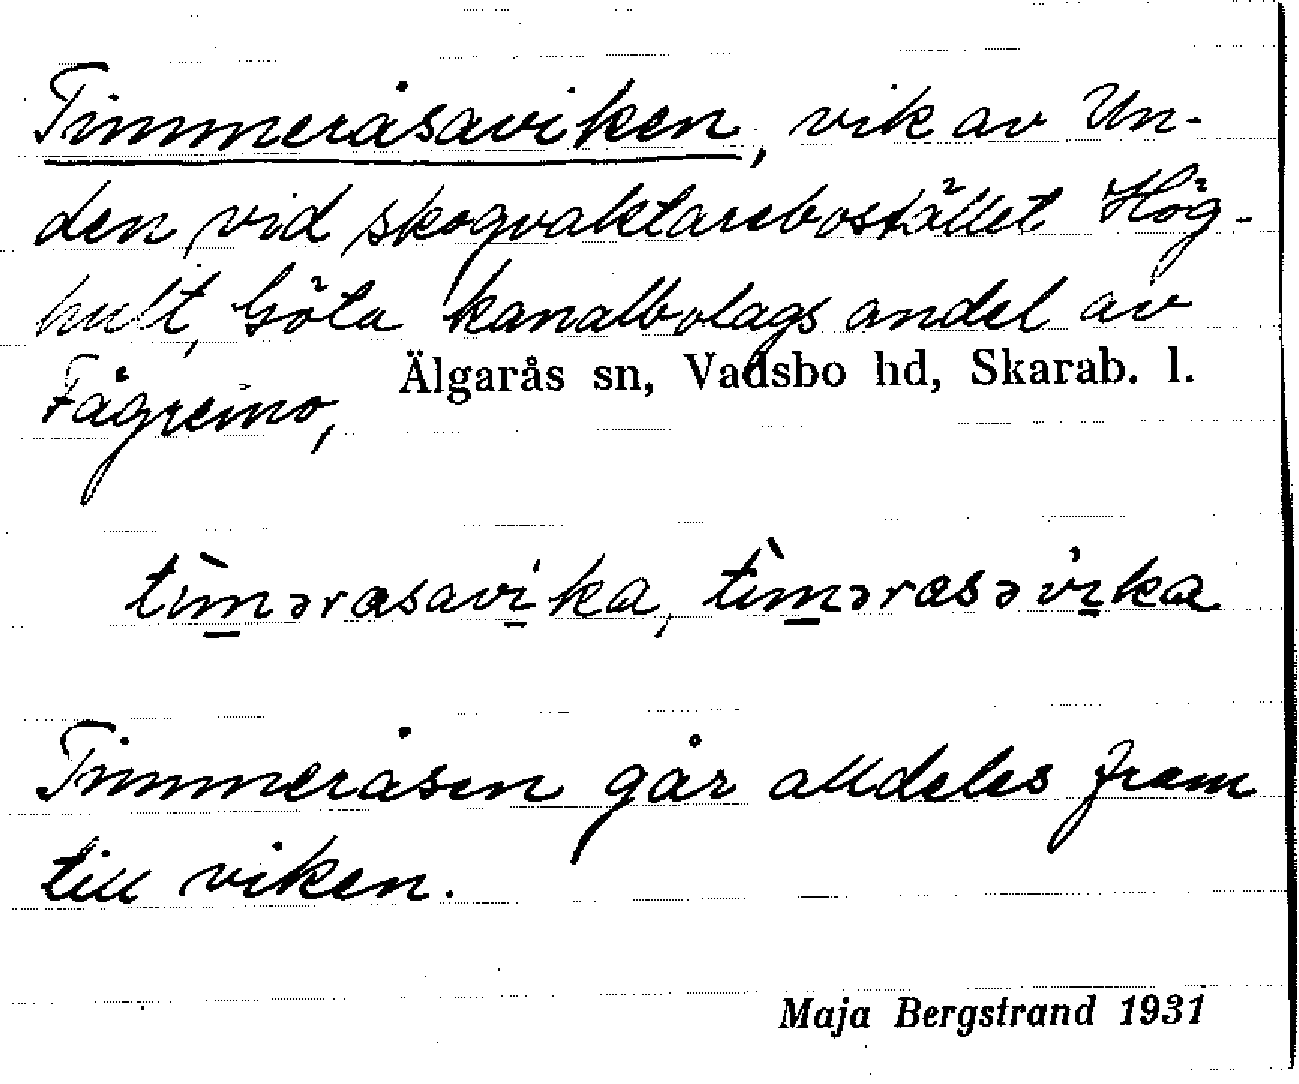 Timmeråsaviken, vik av Un-
den vid skogvaktarebostället Hög-
hult, Göta kanalbolags andel av
Fågremo, Älgarås sn, Vadsbo hd, Skarab. l.
tìmərasavi'ka, tìmərasəvi'ka
Timmeråsen går alldeles fram
till viken.
Maja Bergstrand 1931